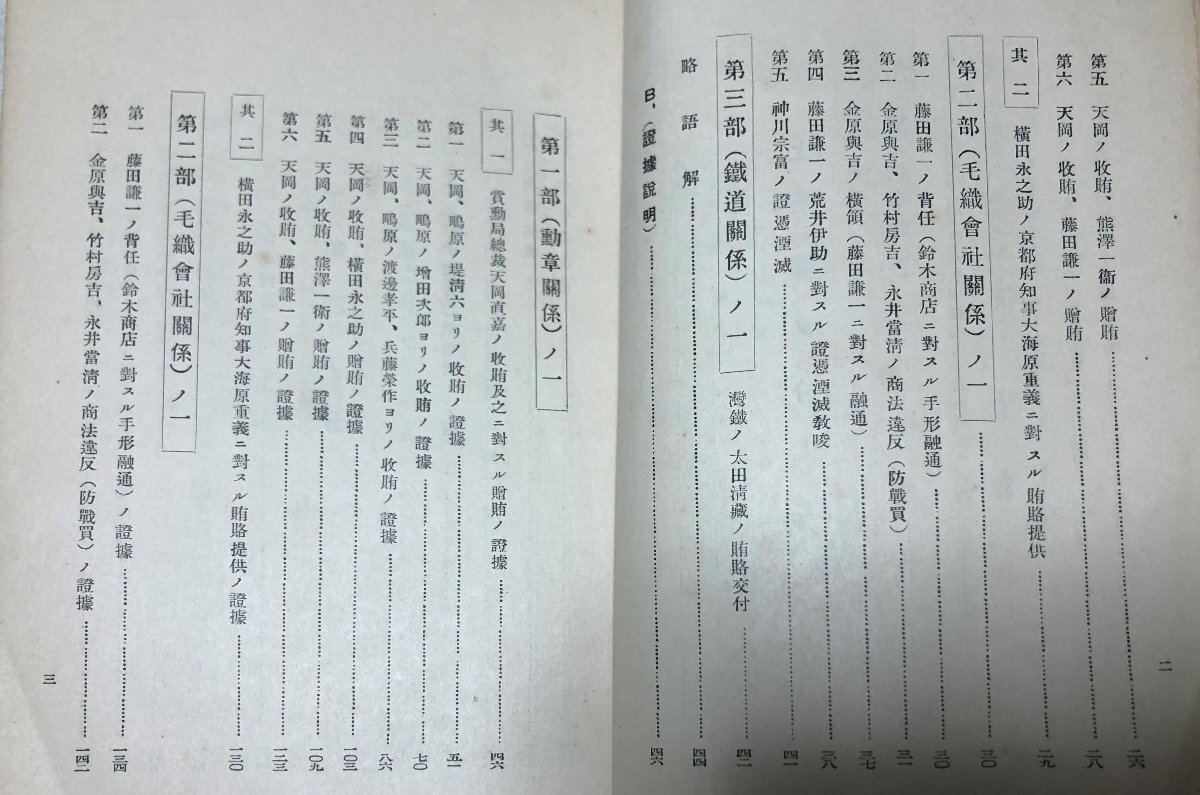 第五 天岡ノ收賄、熊澤一衞ノ贈賄…………二六
第六 天岡ノ收賄、藤田謙一ノ贈賄…………二八
其二 橫田永之助ノ京都府知事大海原重義ニ對スル賄賂提供…………二九
第二部(毛織會社關係)ノ一…………三〇
第一 藤田謙一ノ背任(鈴木商店ニ對スル手形融通)…………三〇
第二 金原與吉、竹村房吉、永井當淸ノ商法違反(防戰買)…………三一
第三 金原與吉ノ橫領(藤田謙一ニ對スル融通)…………三七
第四 藤田謙一ノ荒井伊助ニ對スル證憑湮滅敎唆…………三八
第五 神川宗富ノ證憑湮滅…………四一
第三部(鐵道關係)ノ一 灣鐵ノ太田淸藏ノ賄賂交付…………四二
略語解…………四四
B、(證據說明)…………四六
二
第一部(勳章關係)ノ一
其一 賞勳局總裁天岡直嘉ノ收賄及之ニ對スル贈賄ノ證據…………四六
第一 天岡、鴫原ノ堤淸六ヨリノ收賄ノ證據…………五一
第二 天岡、鴫原ノ增田次郎ヨリノ收賄ノ證據…………七〇
第三 天岡、鴫原ノ渡邊孝平、兵藤榮作ヨリノ收賄ノ證據…………八六
第四 天岡ノ收賄、橫田永之助ノ贈賄ノ證據…………一〇三
第五 天岡ノ收賄、熊澤一衞ノ贈賄ノ證據…………一〇九
第六 天岡ノ收賄、藤田謙一ノ贈賄ノ證據…………一二三
其二 橫田永之助ノ京都府知事大海原重義ニ對スル賄賂提供ノ證據…………一三〇
第二部(毛織會社關係)ノ一
第一 藤田謙一ノ背任(鈴木商店ニ對スル手形融通)ノ證據…………一三四
第二 金原與吉、竹村房吉、永井當淸ノ商法違反(防戰買)ノ證據…………一四二
三